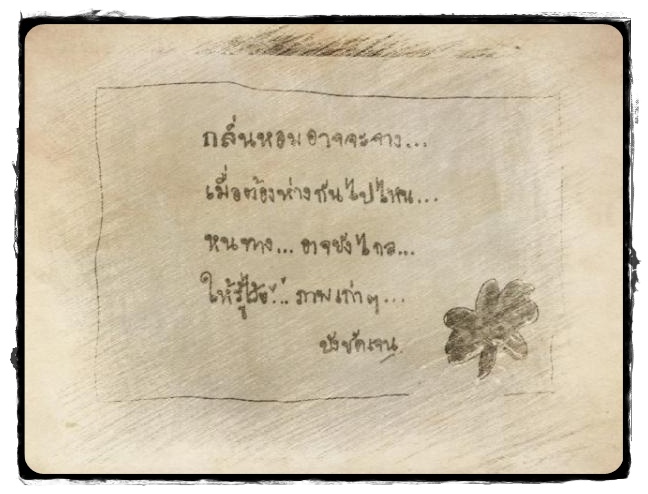 กลิ่นหอมอาจจะจาง...
เมื่อต้องห่างกันไปไหน...
หนทาง...อาจยังไกล...
ให้รู้ไว้ว่า... ภาพเก่าๆ...
ยังชัดเจน